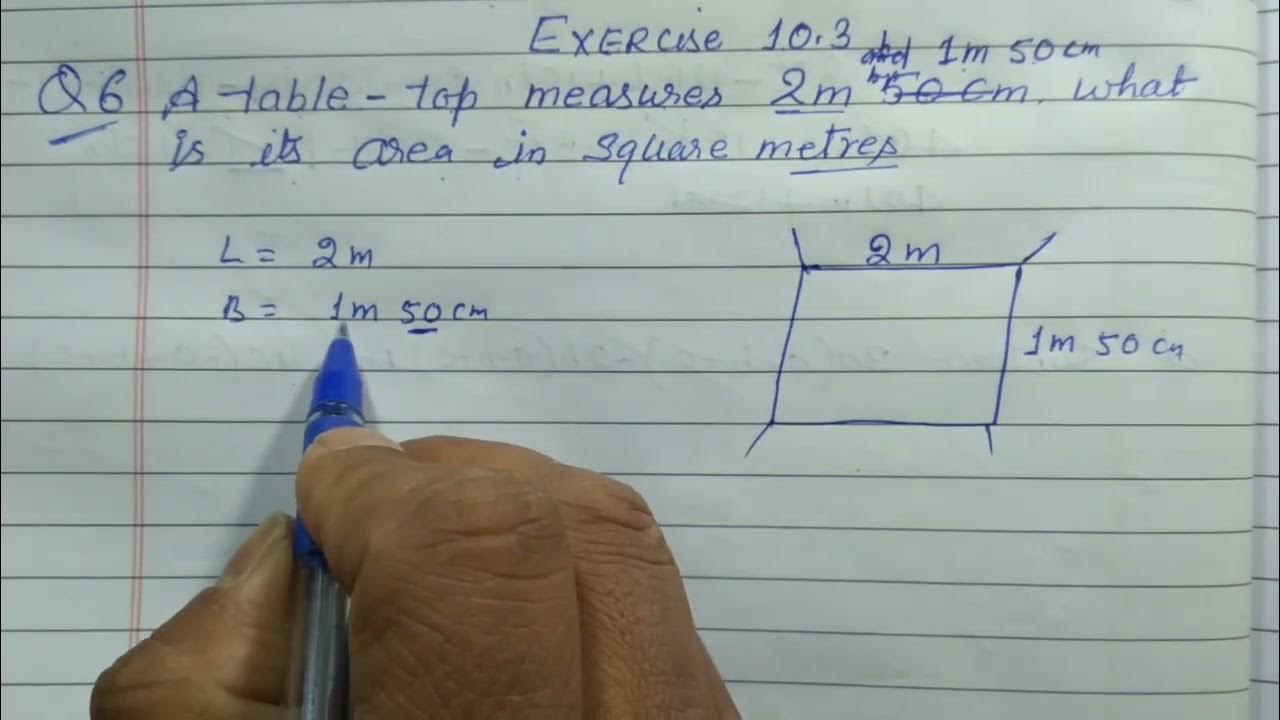 Exercise 10.3
1m 50 cm
Q6 A table-top measures 2m by 50 cm. what
is its area in square metres
L = 2m
B = 1m 50 cm
2m
1m 50 cm